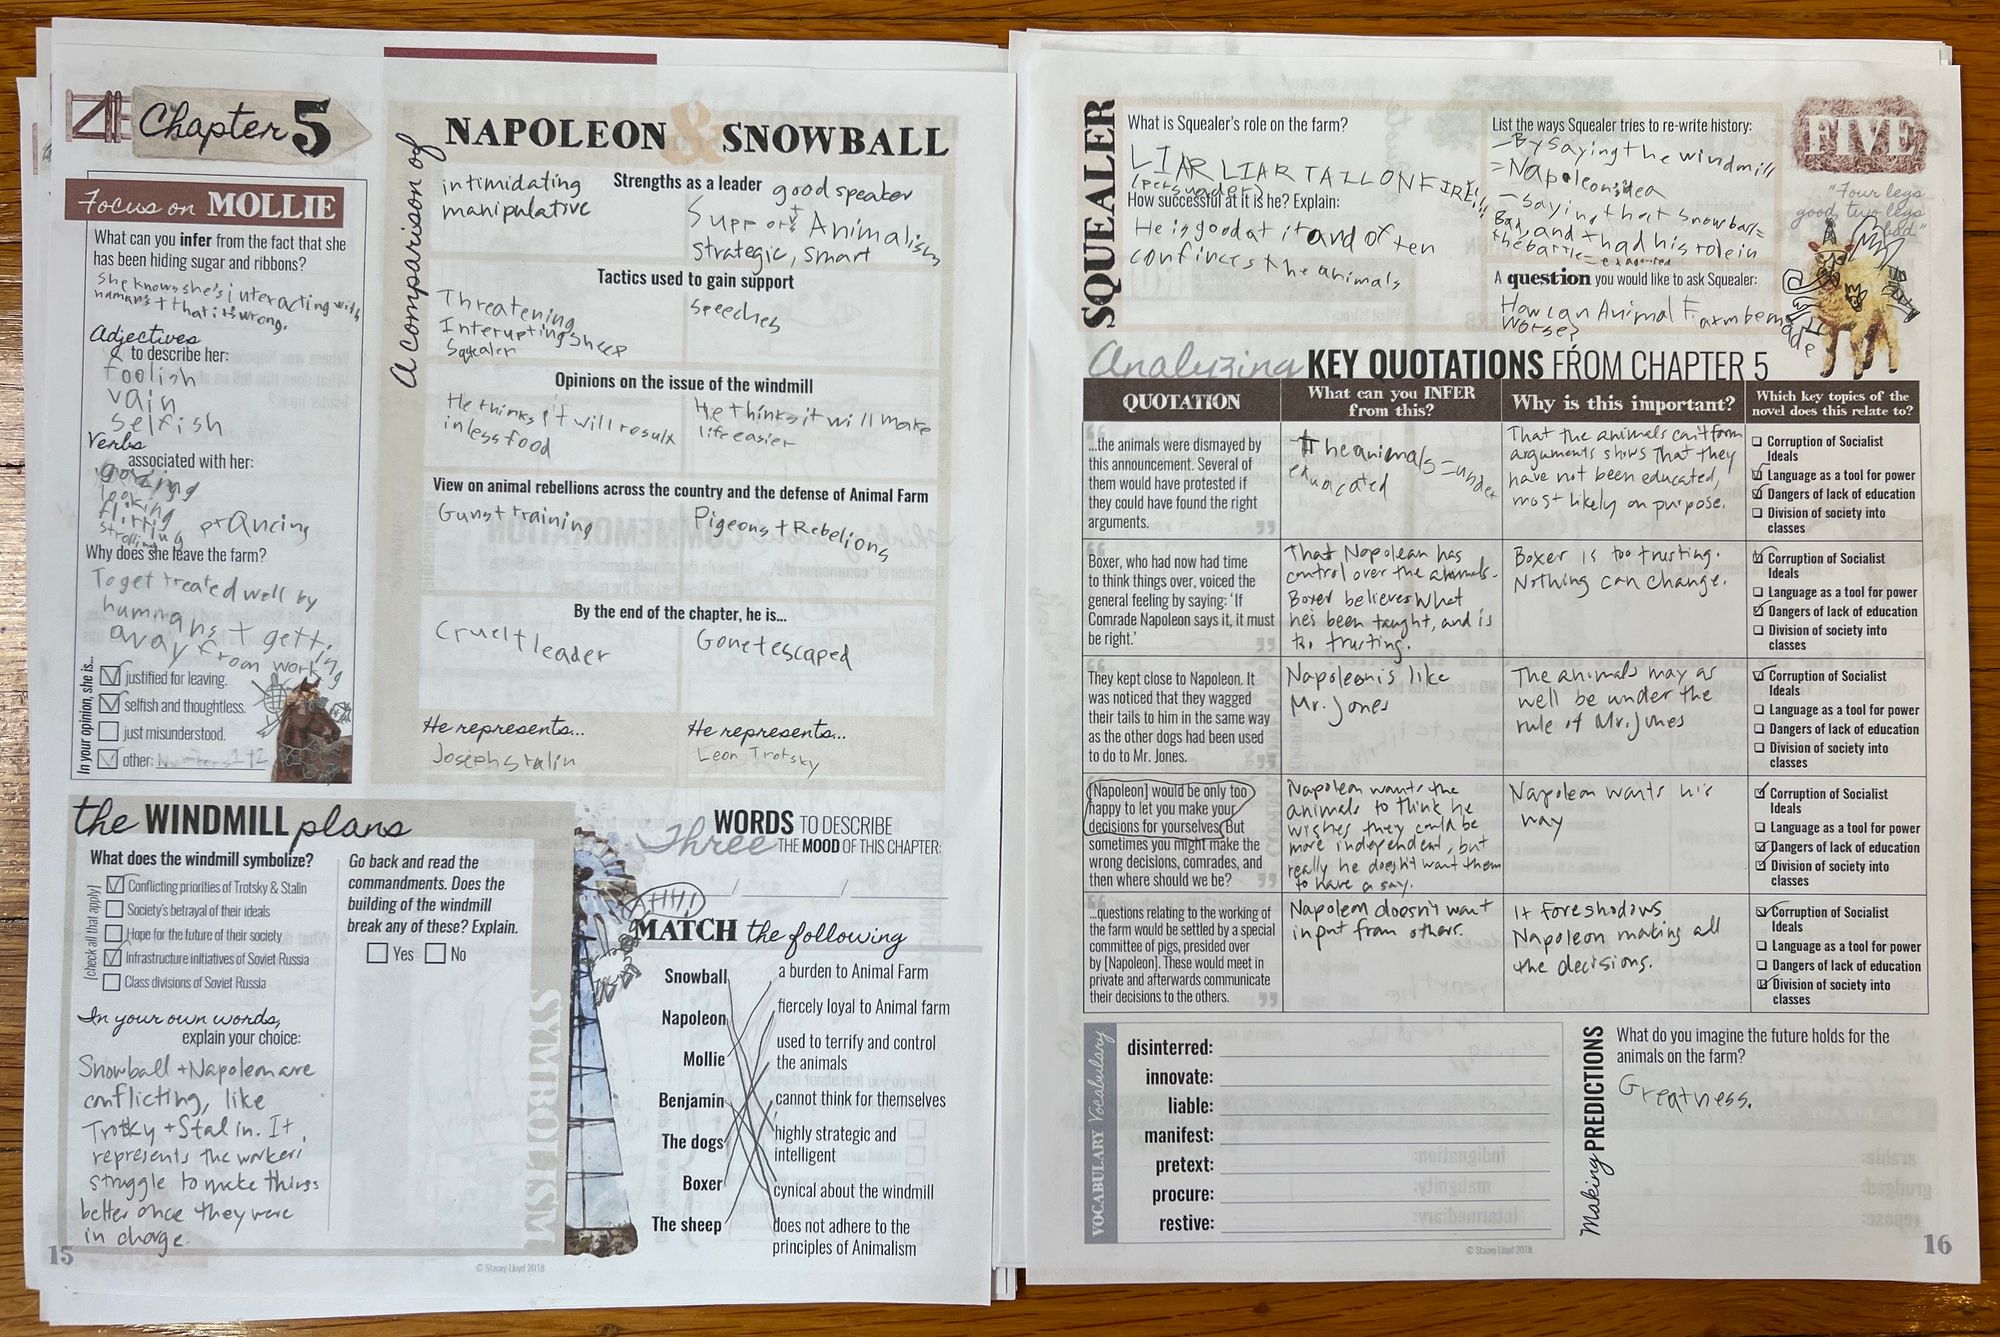 Chapter 5
Focus on MOLLIE
What can you infer from the fact that she
has been hiding sugar and ribbons?
She knows she's interacting with
humans + that it's wrong.
Adjectives
to describe her:
foolish
vain
selfish
Verbs
associated with her:
gazing
looking
flirting
strolling
prancing
Why does she leave the farm?
To get treated well by
hummans + getting
away from work
In your opinion, she is...
justified for leaving.
selfish and thoughtless.
just misunderstood.
other: Numbers 1+2
A comparison of
NAPOLEON & SNOWBALL
Strengths as a leader
intimidating
manipulative
good speaker
Support Animalism
strategic, smart
Tactics used to gain support
Threatening
Interupting sheep
Squealer
speeches
Opinions on the issue of the windmill
He thinks it will result
in less food
He thinks it will make
life easier
View on animal rebellions across the country and the defense of Animal Farm
Guns + training
Pigeons + Rebelions
By the end of the chapter, he is...
Cruel + leader
Gone + escaped
He represents...
Joseph Stalin
He represents...
Leon Trotsky
the WINDMILL plans
What does the windmill symbolize?
[check all that apply]
Conflicting priorities of Trotsky & Stalin
Society's betrayal of their ideals
Hope for the future of their society
Infrastructure initiatives of Soviet Russia
Class divisions of Soviet Russia
In your own words,
explain your choice:
Snowball + Napoleon are
conflicting, like
Trotsky + Stalin. It
represents the workers
struggle to make things
better once they were
in charge.
Go back and read the
commandments. Does the
building of the windmill
break any of these? Explain.
Yes No
SYMBOLISM
Three WORDS TO DESCRIBE
THE MOOD OF THIS CHAPTER:
/ /
MATCH the following
Snowball
Napoleon
Mollie
Benjamin
The dogs
Boxer
The sheep
a burden to Animal Farm
fiercely loyal to Animal farm
used to terrify and control
the animals
cannot think for themselves
highly strategic and
intelligent
cynical about the windmill
does not adhere to the
principles of Animalism
15
© Stacey Lloyd 2018
SQUEALER
What is Squealer's role on the farm?
LIAR LIAR TAIL ON FIRE!!!
(persuader)
How successful at it is he? Explain:
He is good at it and often
confinces the animals
List the ways Squealer tries to re-write history:
- By saying the windmill
= Napoleon's idea
- saying that Snowball =
Bad, and + had his role in
the battle = exagerited
A question you would like to ask Squealer:
How can Animal Farm be made
worse?
FIVE
"Four legs
good, two legs
bad"
Analyzing KEY QUOTATIONS FROM CHAPTER 5
QUOTATION
What can you INFER
from this?
Why is this important?
Which key topics of the
novel does this relate to?
...the animals were dismayed by
this announcement. Several of
them would have protested if
they could have found the right
arguments.
The animals = under
educated
That the animals can't form
arguments shows that they
have not been educated,
most likely on purpose.
Corruption of Socialist
Ideals
Language as a tool for power
Dangers of lack of education
Division of society into
classes
Boxer, who had now had time
to think things over, voiced the
general feeling by saying: 'If
Comrade Napoleon says it, it must
be right.'
That Napolean has
control over the animals.
Boxer believes what
he's been taught, and is
too trusting.
Boxer is too trusting.
Nothing can change.
Corruption of Socialist
Ideals
Language as a tool for power
Dangers of lack of education
Division of society into
classes
They kept close to Napoleon. It
was noticed that they wagged
their tails to him in the same way
as the other dogs had been used
to do to Mr. Jones.
Napoleon is like
Mr. Jones
The animals may as
well be under the
rule of Mr. Jones
Corruption of Socialist
Ideals
Language as a tool for power
Dangers of lack of education
Division of society into
classes
[Napoleon] would be only too
happy to let you make your
decisions for yourselves. But
sometimes you might make the
wrong decisions, comrades, and
then where should we be?
Napoleon wants the
animals to think he
wishes they could be
more independent, but
really he doesn't want them
to have a say.
Napoleon wants his
way
Corruption of Socialist
Ideals
Language as a tool for power
Dangers of lack of education
Division of society into
classes
...questions relating to the working of
the farm would be settled by a special
committee of pigs, presided over
by [Napoleon]. These would meet in
private and afterwards communicate
their decisions to the others.
Napoleon doesn't want
input from others.
It foreshodows
Napoleon making all
the decisions.
Corruption of Socialist
Ideals
Language as a tool for power
Dangers of lack of education
Division of society into
classes
VOCABULARY Vocabulary
disinterred:
innovate:
liable:
manifest:
pretext:
procure:
restive:
Making PREDICTIONS
What do you imagine the future holds for the
animals on the farm?
Greatness.
© Stacey Lloyd 2018
16